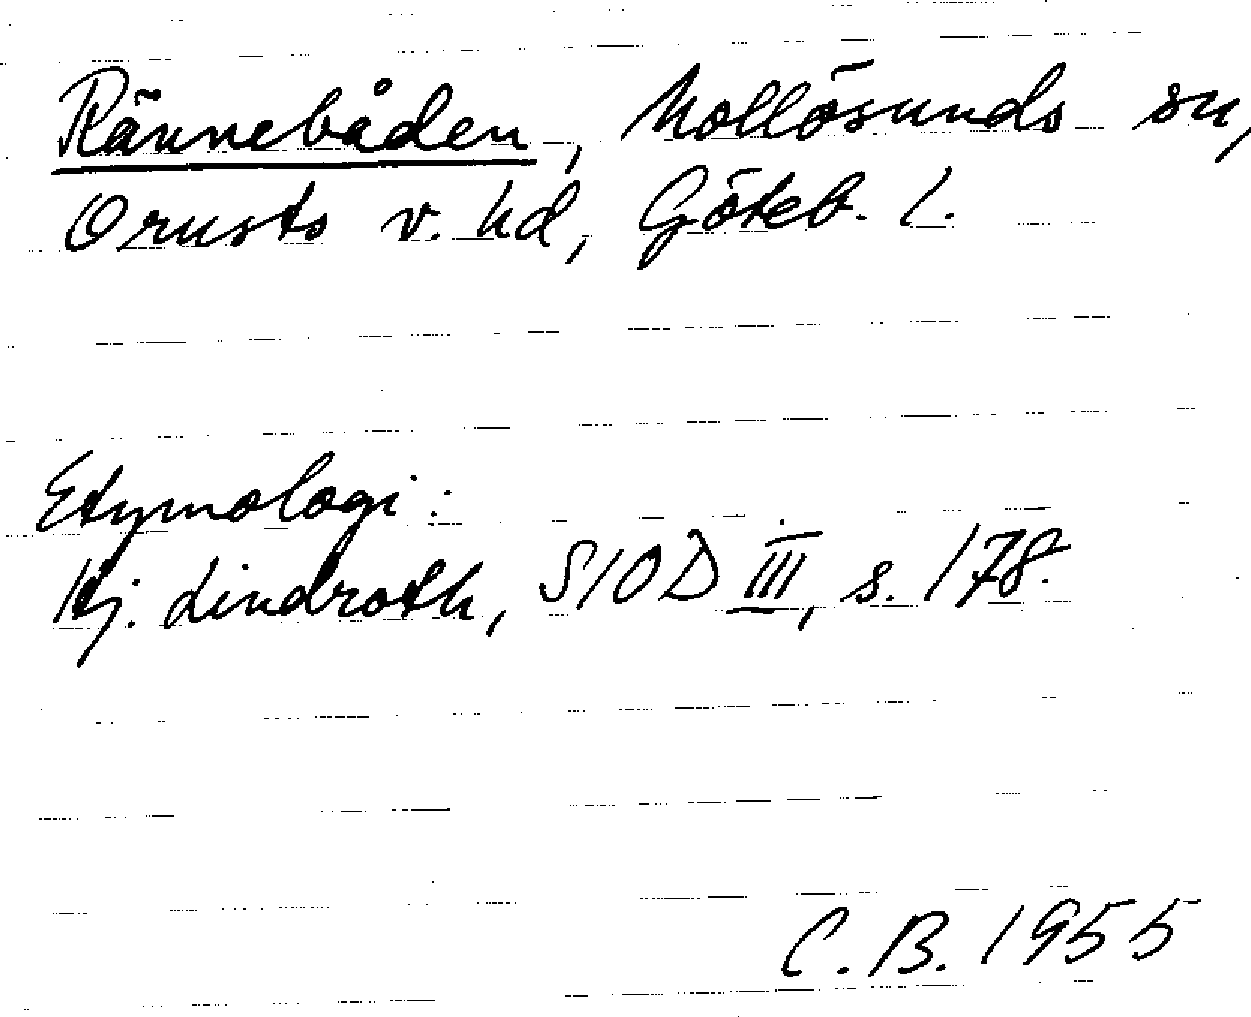 Rännebåden, Mollösunds sn,
Orusts v. hd, Göteb. l.
Etymologi:
Hj. Lindroth, SIOD III, s. 178.
C. B. 1955